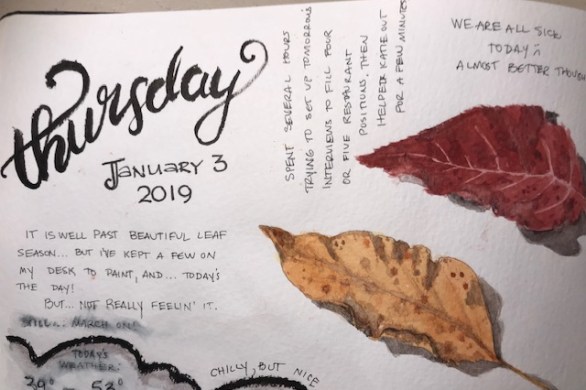 Thursday
January 3
2019
IT IS WELL PAST BEAUTIFUL LEAF
SEASON... BUT I'VE KEPT A FEW ON
MY DESK TO PAINT, AND... TODAY'S
THE DAY!
BUT... NOT REALLY FEELIN' IT.
STILL... MARCH ON!
TODAY'S
WEATHER:
29° – 53°
CHILLY, BUT NICE
SPENT SEVERAL HOURS
TRYING TO SET UP TOMORROW'S
INTERVIEWS TO FILL FOUR
OR FIVE RESTAURANT
POSITIONS. THEN
HELPED KATIE OUT
FOR A FEW MINUTES
WE ARE ALL SICK
TODAY
ALMOST BETTER THOUGH